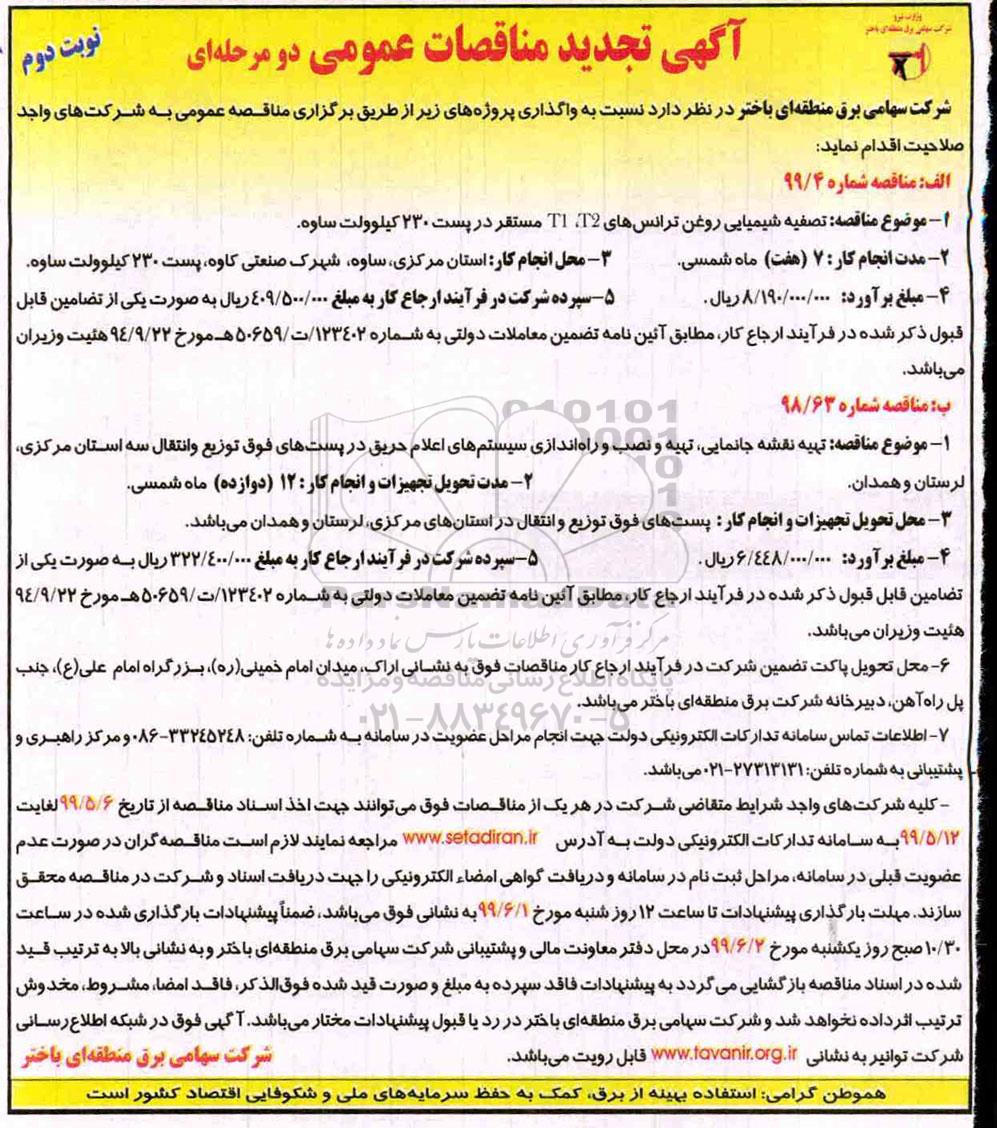 وزارت نیرو
شرکت سهامی برق منطقه‌ای باختر
آگهی تجدید مناقصات عمومی دو مرحله‌ای
نوبت دوم
شرکت سهامی برق منطقه‌ای باختر در نظر دارد نسبت به واگذاری پروژه‌های زیر از طریق برگزاری مناقصه عمومی به شرکت‌های واجد
صلاحیت اقدام نماید:
الف: مناقصه شماره ۹۹/۴
۱- موضوع مناقصه: تصفیه شیمیایی روغن ترانس‌های T1 ،T2 مستقر در پست ۲۳۰ کیلوولت ساوه.
۲- مدت انجام کار: ۷ (هفت) ماه شمسی. ۳- محل انجام کار: استان مرکزی، ساوه، شهرک صنعتی کاوه، پست ۲۳۰ کیلوولت ساوه.
۴- مبلغ برآورد: ۸/۱۹۰/۰۰۰/۰۰۰ ریال. ۵- سپرده شرکت در فرآیند ارجاع کار به مبلغ ۴۰۹/۵۰۰/۰۰۰ ریال به صورت یکی از تضامین قابل
قبول ذکر شده در فرآیند ارجاع کار، مطابق آئین نامه تضمین معاملات دولتی به شماره ۱۲۳۴۰۲/ت/۵۰۶۵۹هـ مورخ ۹۴/۹/۲۲ هئیت وزیران
می‌باشد.
ب: مناقصه شماره ۹۸/۶۳
۱- موضوع مناقصه: تهیه نقشه جانمایی، تهیه و نصب و راه‌اندازی سیستم‌های اعلام حریق در پست‌های فوق توزیع وانتقال سه استان مرکزی،
لرستان و همدان. ۲- مدت تحویل تجهیزات و انجام کار: ۱۲ (دوازده) ماه شمسی.
۳- محل تحویل تجهیزات و انجام کار: پست‌های فوق توزیع و انتقال در استان‌های مرکزی، لرستان و همدان می‌باشد.
۴- مبلغ برآورد: ۶/۴۴۸/۰۰۰/۰۰۰ ریال. ۵- سپرده شرکت در فرآیند ارجاع کار به مبلغ ۳۲۲/۴۰۰/۰۰۰ ریال به صورت یکی از
تضامین قابل قبول ذکر شده در فرآیند ارجاع کار، مطابق آئین نامه تضمین معاملات دولتی به شماره ۱۲۳۴۰۲/ت/۵۰۶۵۹هـ مورخ ۹۴/۹/۲۲
هئیت وزیران می‌باشد.
۶- محل تحویل پاکت تضمین شرکت در فرآیند ارجاع کار مناقصات فوق به نشانی اراک، میدان امام خمینی(ره)، بزرگراه امام علی(ع)، جنب
پل راه‌آهن، دبیرخانه شرکت برق منطقه‌ای باختر می‌باشد.
۷- اطلاعات تماس سامانه تدارکات الکترونیکی دولت جهت انجام مراحل عضویت در سامانه به شماره تلفن: ۳۳۲۴۵۲۴۸-۰۸۶ و مرکز راهبری و
پشتیبانی به شماره تلفن: ۲۷۳۱۳۱۳۱-۰۲۱ می‌باشد.
- کلیه شرکت‌های واجد شرایط متقاضی شرکت در هر یک از مناقصات فوق می‌توانند جهت اخذ اسناد مناقصه از تاریخ ۹۹/۵/۶ لغایت
۹۹/۵/۱۲ به سامانه تدارکات الکترونیکی دولت به آدرس www.setadiran.ir مراجعه نمایند لازم است مناقصه‌گران در صورت عدم
عضویت قبلی در سامانه، مراحل ثبت نام در سامانه و دریافت گواهی امضاء الکترونیکی را جهت دریافت اسناد و شرکت در مناقصه محقق
سازند. مهلت بارگذاری پیشنهادات تا ساعت ۱۲ روز شنبه مورخ ۹۹/۶/۱ به نشانی فوق می‌باشد، ضمناً پیشنهادات بارگذاری شده در ساعت
۱۰/۳۰ صبح روز یکشنبه مورخ ۹۹/۶/۲ در محل دفتر معاونت مالی و پشتیبانی شرکت سهامی برق منطقه‌ای باختر و به نشانی بالا به ترتیب قید
شده در اسناد مناقصه بازگشایی می‌گردد به پیشنهادات فاقد سپرده به مبلغ و صورت قید شده فوق‌الذکر، فاقد امضا، مشروط، مخدوش
ترتیب اثر داده نخواهد شد و شرکت سهامی برق منطقه‌ای باختر در رد یا قبول پیشنهادات مختار می‌باشد. آگهی فوق در شبکه اطلاع‌رسانی
شرکت توانیر به نشانی www.tavanir.org.ir قابل رویت می‌باشد.
شرکت سهامی برق منطقه‌ای باختر
هموطن گرامی: استفاده بهینه از برق، کمک به حفظ سرمایه‌های ملی و شکوفایی اقتصاد کشور است
ParsNamadData
مرکز فرآوری اطلاعات پارس نماد داده‌ها
پایگاه اطلاع رسانی مناقصه و مزایده
۰۲۱-۸۸۳۴۹۶۷۰-۵